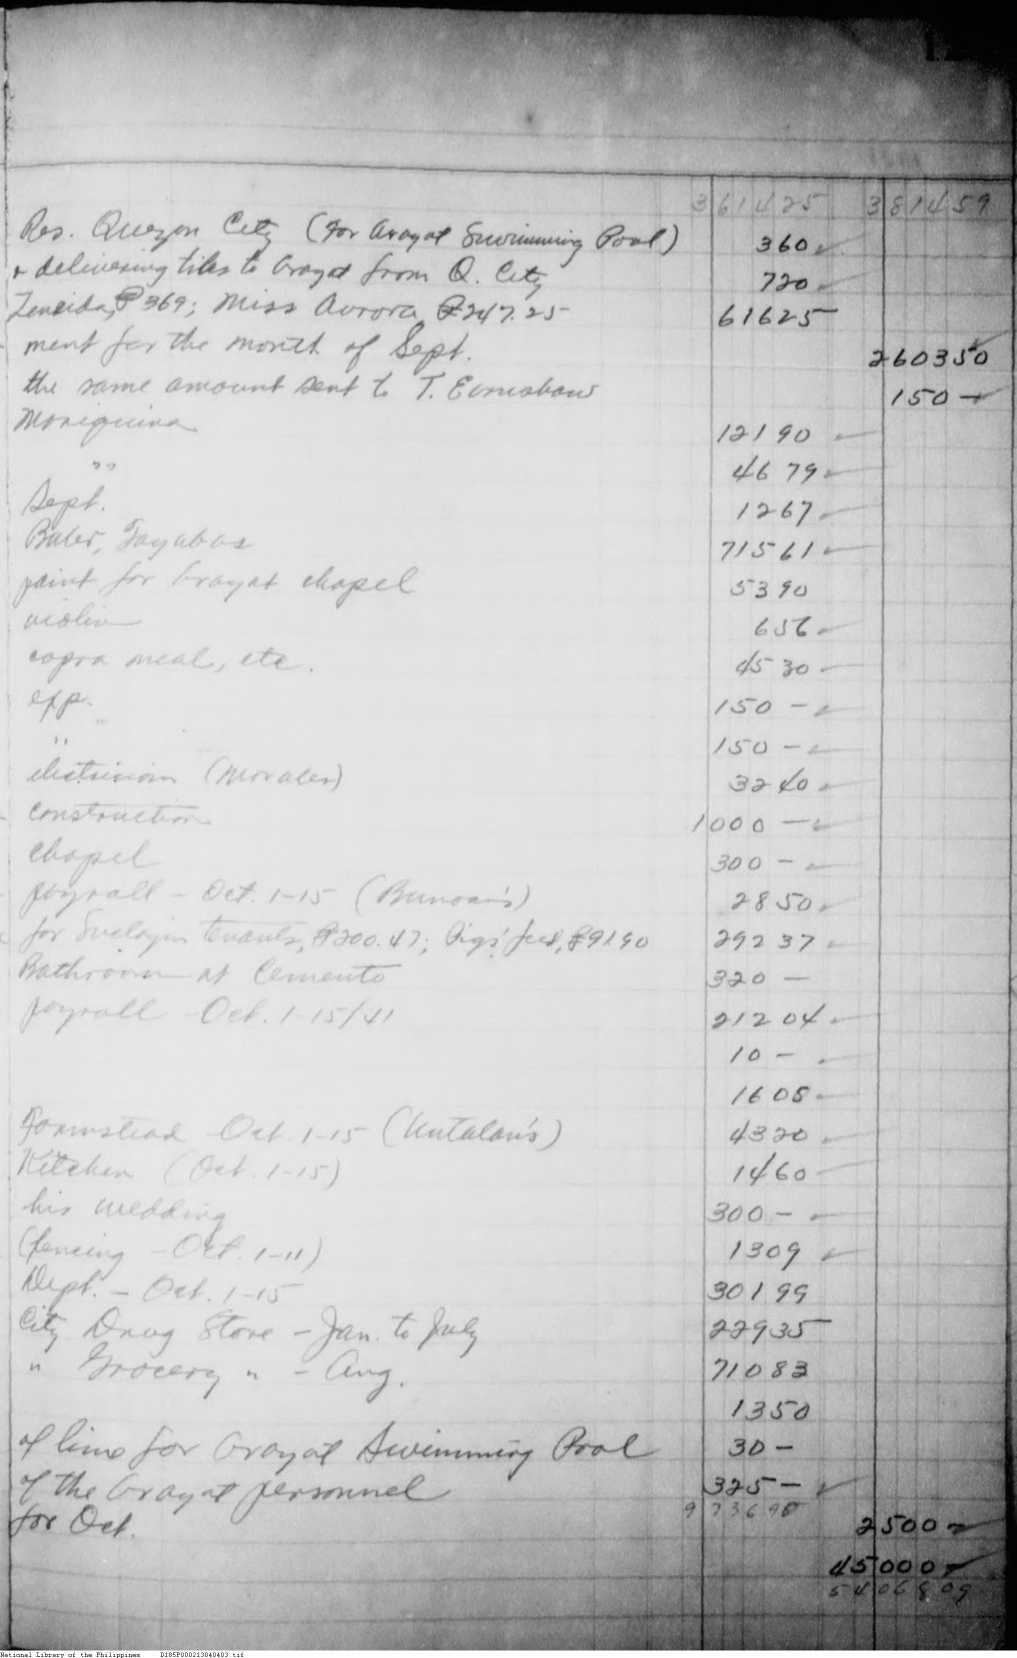 361425 381459
Res. Quezon City (for Arayat Swimming Pool) 360
& delivering tiles to Arayat from Q. City 720
Zeneida, ₱369; Miss Aurora ₱247.25 61625
ment for the month of Sept. 260350
the same amount sent to T. Earnshaw 150 -
Mariquina 12190
" 4679
Sept. 1267
Baler, Tayabas 71561
paint for Arayat chapel 5390
violin 656
copra meal, etc. 4530
exp. 150 -
" 150 -
(Morales) 3240
construction 1000 -
chapel 300 -
payroll - Oct. 1-15 (Bunoan's) 2850
for tenants, ₱200.47; Pigs' feed, ₱91.90 29237
Bathroom at Cemento 320 -
payroll - Oct. 1-15/41 21204
10 -
1608
Farmstead - Oct. 1-15 (Untalan's) 4320
Kitchen (Oct. 1-15) 1460
his wedding 300 -
(fencing - Oct. 1-11) 1309
Dept. - Oct. 1-15 30199
City Drug Store - Jan. to July 22935
" Grocery " - Aug. 71083
1350
of lime for Arayat Swimming Pool 30 -
of the Arayat personnel 325 -
973690
for Oct. 2500 -
45000 -
5406809
National Library of the Philippines D185P000213040403.tif